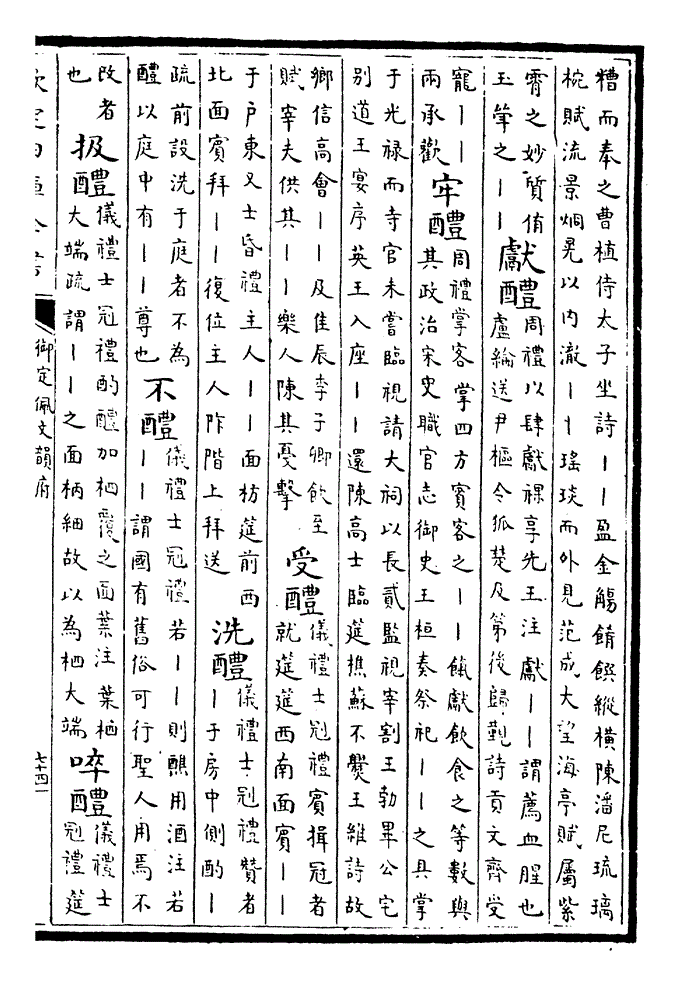 糟而奉之曹植侍太子坐詩丨丨盈金觴餚饌縱橫陳潘尼琉璃
椀賦流景烱晃以内澈丨丨瑤琰而外見范成大望海亭賦屬紫
霄之妙質侑
玉斝之丨丨
獻醴
周禮以肆獻祼享先王注獻丨丨謂薦血腥也
盧綸送尹樞令狐楚及第後歸覲詩貢文齊受
寵丨丨
兩承歡
牢醴
周禮掌客掌四方賓客之丨丨餼獻飲食之等數與
其政治宋史職官志御史王桓奏祭祀丨丨之具掌
于光禄而寺官未嘗臨視請大祠以長貳監視宰割王勃畢公宅
别道王宴序英王入座丨丨還陳高士臨筵樵蘇不爨王維詩故
鄉信高會丨丨及佳辰李子卿飲至
賦宰夫供其丨丨樂人陳其戛擊
受醴
儀禮士冠禮賓揖冠者
就筵筵西南面賓丨丨
于户東又士昏禮主人丨丨面枋筵前西
北面賓拜丨丨復位主人阼階上拜送
洗醴
儀禮士冠禮贊者
丨于房中側酌丨
疏前設洗于庭者不為
醴以庭中有丨丨尊也
不醴
儀禮士冠禮若丨丨則醮用酒注若
丨丨謂國有舊俗可行聖人用焉不
改者
也
扱醴
儀禮士冠禮酌醴加柶覆之面葉注葉柶
大端疏謂丨丨之面柄細故以為柶大端
啐醴
儀禮士
冠禮筵
欽定四庫全書
御定佩文韻府
七十四一